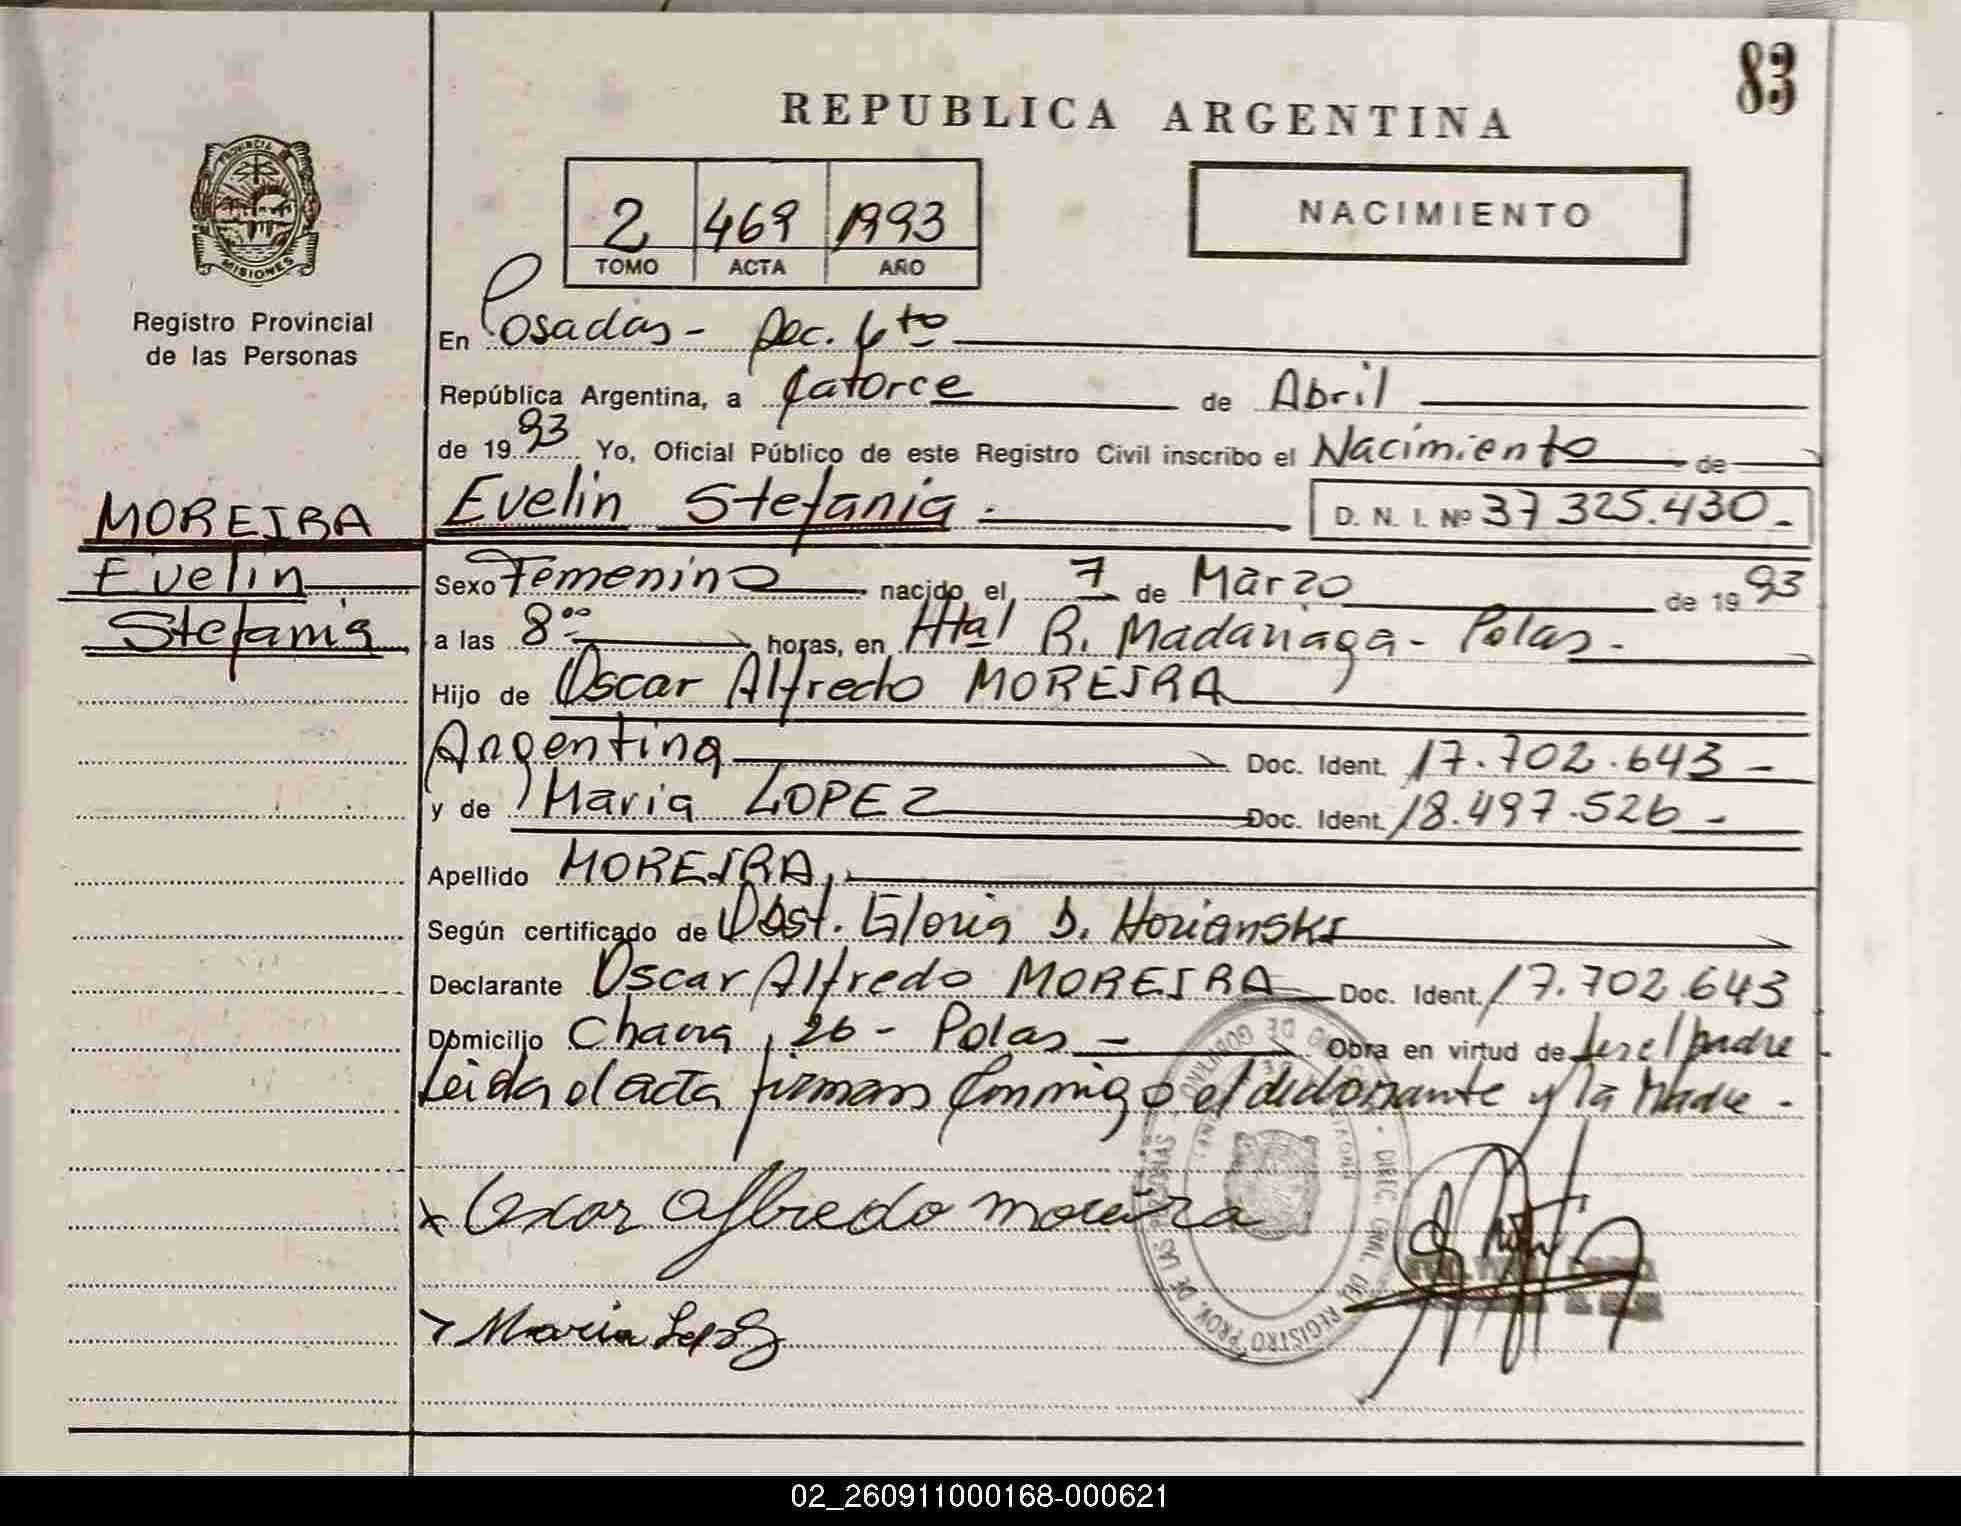 83
REPUBLICA ARGENTINA
PROVINCIA
MISIONES
Registro Provincial
de las Personas
2 469 1993
TOMO ACTA AÑO
NACIMIENTO
En Posadas - Sec. 6to
República Argentina, a Catorce de Abril
de 1993 Yo, Oficial Público de este Registro Civil inscribo el Nacimiento de
MOREIRA
Evelin
Stefania
Evelin Stefania. D. N. I. Nº 37 325.430.-
Sexo Femenino nacido el 7 de Marzo de 1993
a las 8:00 horas, en Htal R. Madariaga - Pdas.
Hijo de Oscar Alfredo MOREIRA
Argentina Doc. Ident. 17.702.643 -
y de Maria LOPEZ Doc. Ident. 18.497.526 -
Apellido MOREIRA
Según certificado de Obst. Gloria D.
Declarante Oscar Alfredo MOREIRA Doc. Ident. 17.702.643
Domicilio 26 - Pdas - Obra en virtud de ser el padre
Leida el acta firman conmigo el declarante y la Madre -
x Oscar Alfredo moreira
Maria Lopez
DIREC. GRAL. DEL REGISTRO PROV. DE LAS PERSONAS
02_260911000168-000621